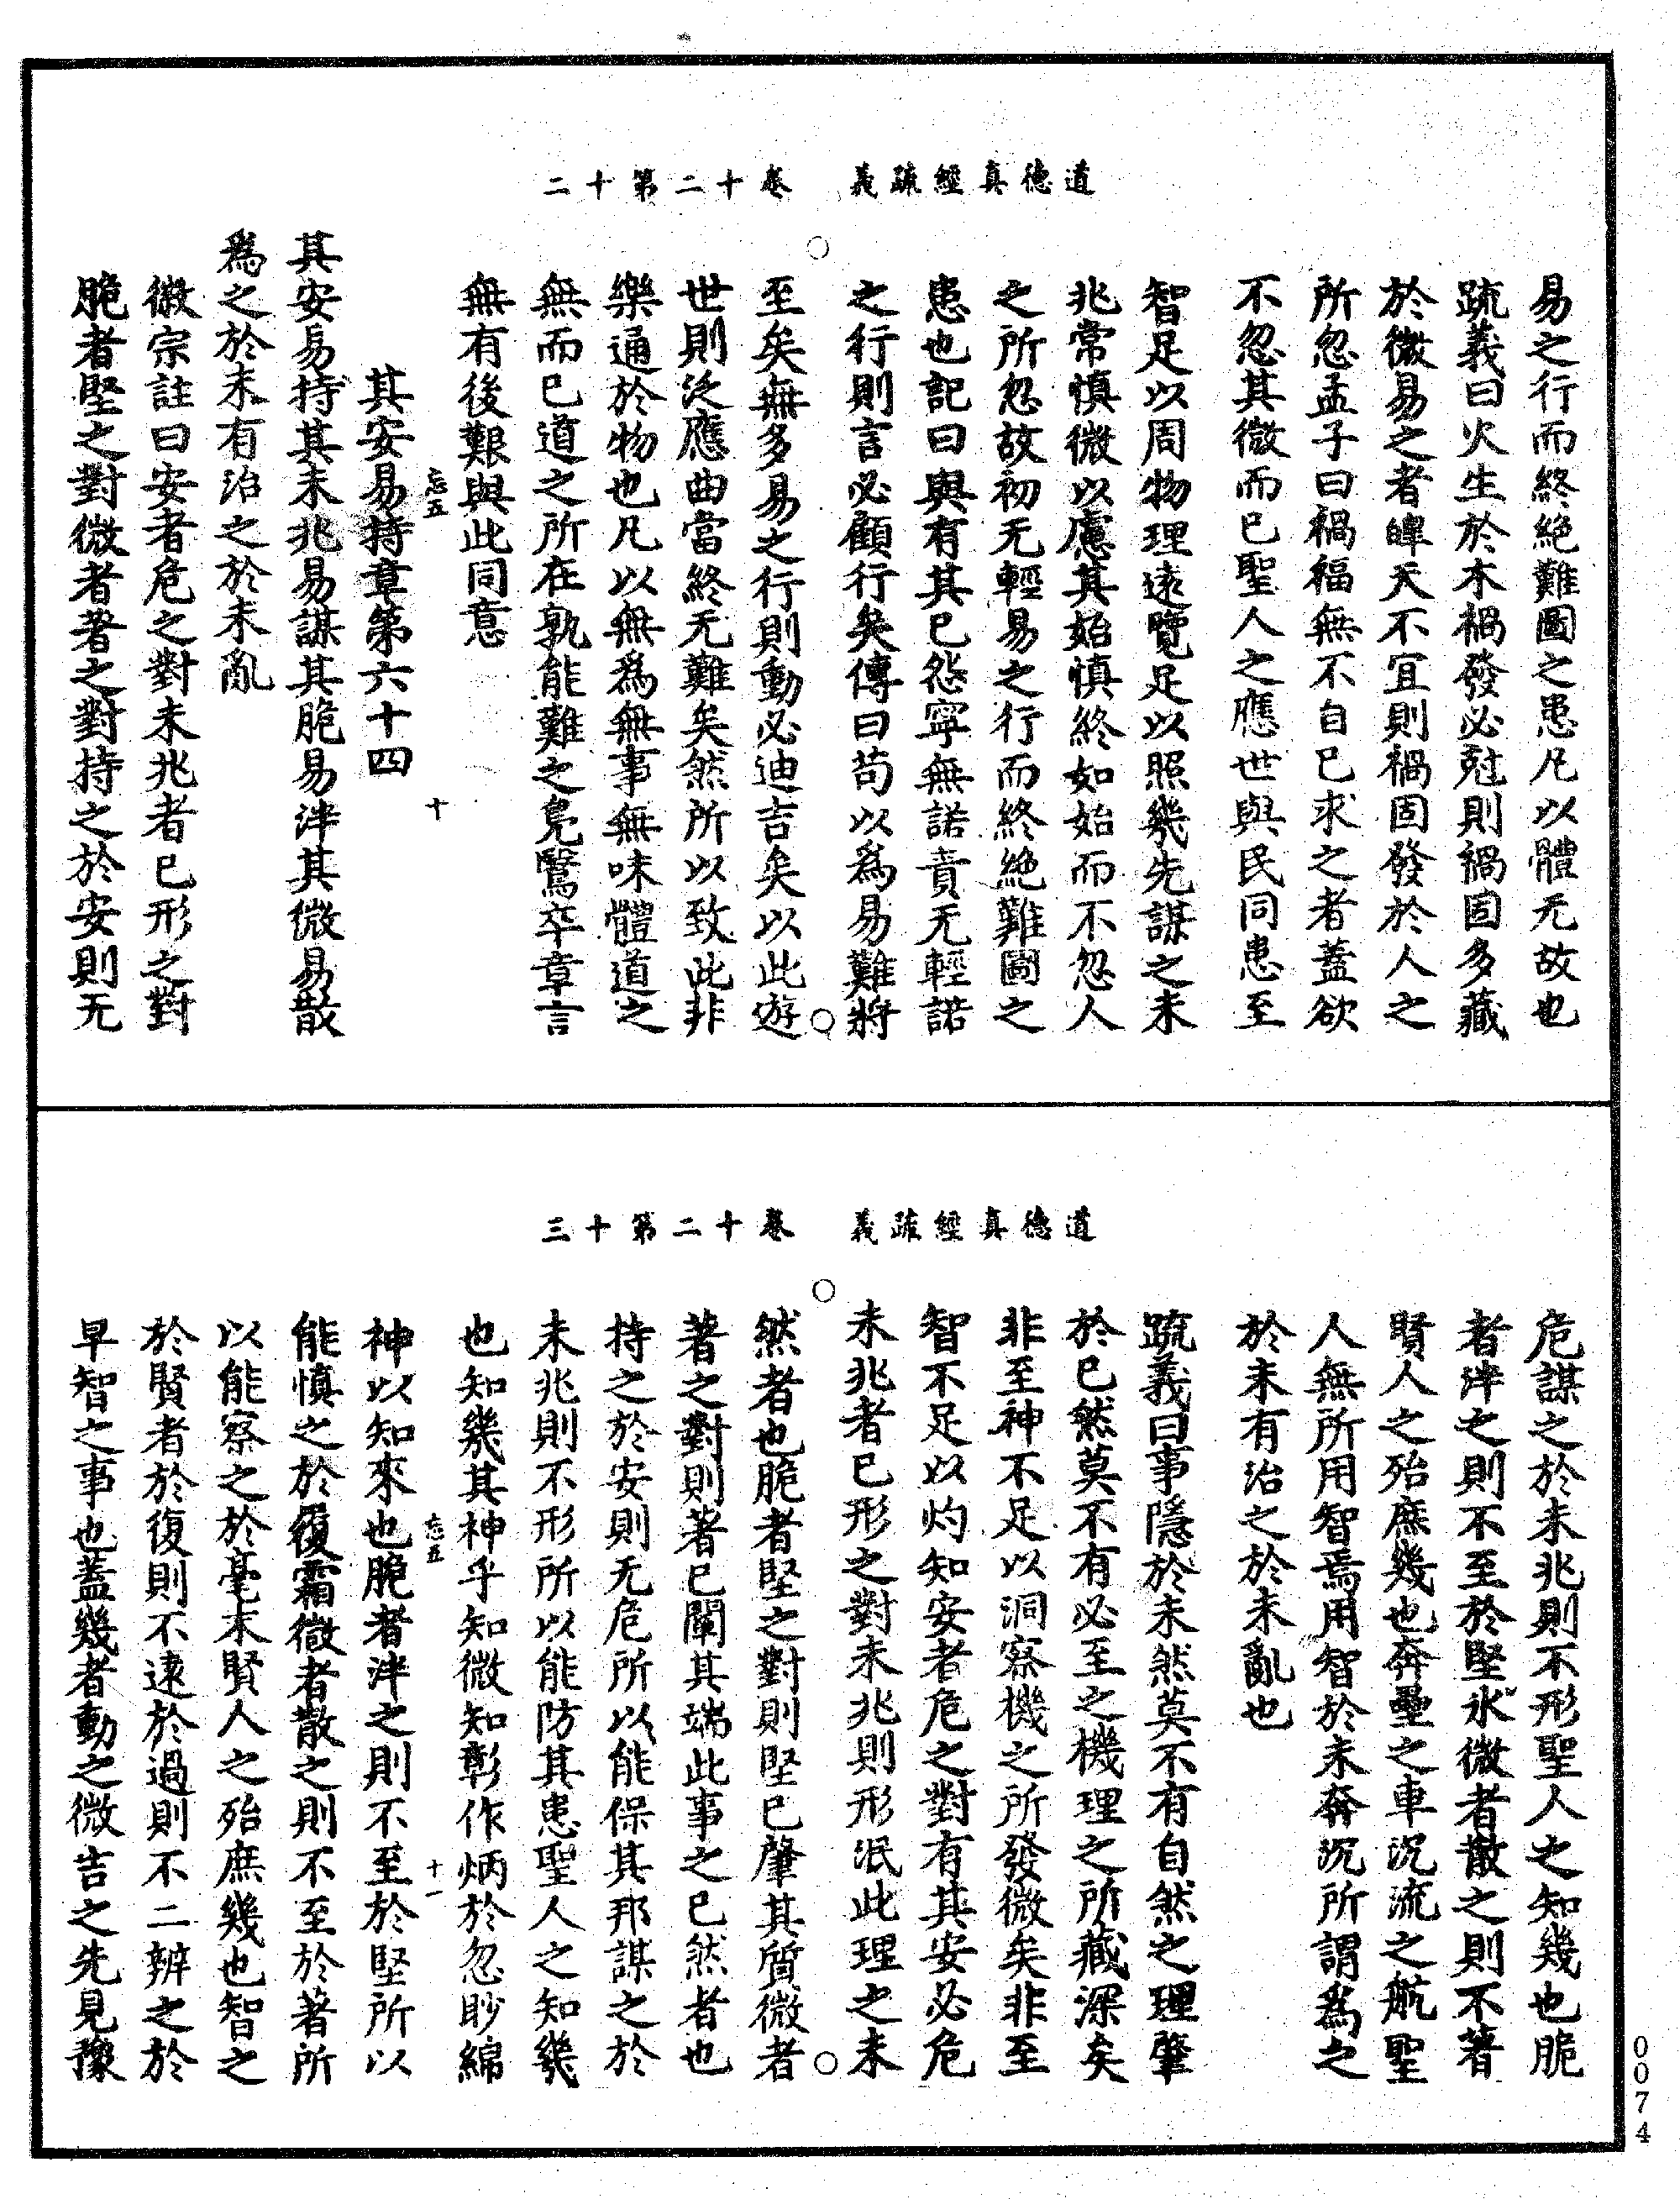 道德真經疏義　卷十二第十二
易之行而終絶難圖之患凡以體无故也
疏義曰火生於木禍發必尅則禍固多藏
於微易之者皡天不宜則禍固發於人之
所忽孟子曰禍福無不自已求之者蓋欲
不忽其微而已聖人之應世與民同患至
智足以周物理逺覽足以照幾先謀之未
兆常慎微以慮其始慎終如始而不忽人
之所忽故初无輕易之行而終絶難圖之
患也記曰與有其已怨寧無諾責无輕諾
之行則言必顧行矣傳曰苟以爲易難將
至矣無多易之行則動必迪吉矣以此遊
世則泛應曲當終无難矣然所以致此非
樂通於物也凡以無爲無事無味體道之
無而已道之所在孰能難之鳧鷖卒章言
無有後艱與此同意
忘五　十
其安易持章第六十四
其安易持其未兆易謀其脆易泮其微易散
爲之於未有治之於未亂
徽宗註曰安者危之對未兆者已形之對
脆者堅之對微者著之對持之於安則无
道德真經疏義　卷十二第十三
危謀之於未兆則不形聖人之知幾也脆
者泮之則不至於堅氷微者散之則不著
賢人之殆庶幾也奔壘之車沉流之航聖
人無所用智焉用智於未奔沉所謂爲之
於未有治之於未亂也
疏義曰事隱於未然莫不有自然之理肇
於已然莫不有必至之機理之所藏深矣
非至神不足以洞察機之所發微矣非至
智不足以灼知安者危之對有其安必危
未兆者已形之對未兆則形泯此理之未
然者也脆者堅之對則堅已肇其質微者
著之對則著已闡其端此事之已然者也
持之於安則无危所以能保其邦謀之於
未兆則不形所以能防其患聖人之知幾
也知幾其神乎知微知彰作炳於忽眇綿
忘五　十一
神以知來也脆者泮之則不至於堅所以
能慎之於履霜微者散之則不至於著所
以能察之於毫末賢人之殆庶幾也智之
於賢者於復則不逺於過則不二辨之於
早智之事也蓋幾者動之微吉之先見豫
0074